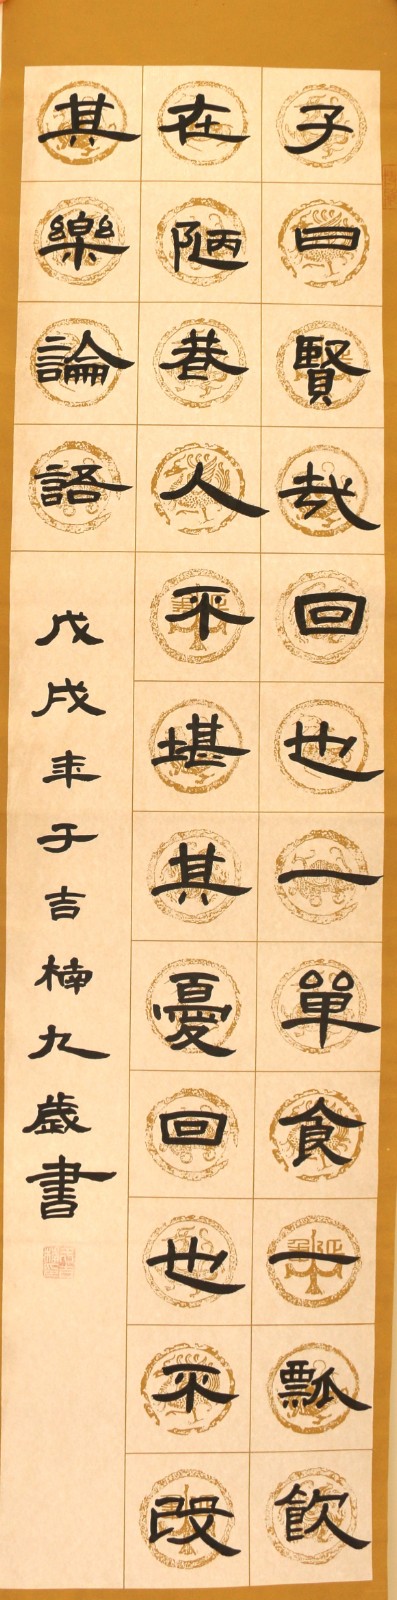 子曰賢哉回也一單食一瓢飲
在陋巷人不堪其憂回也不改
其樂論語
戊戌年于吉楠九歲書